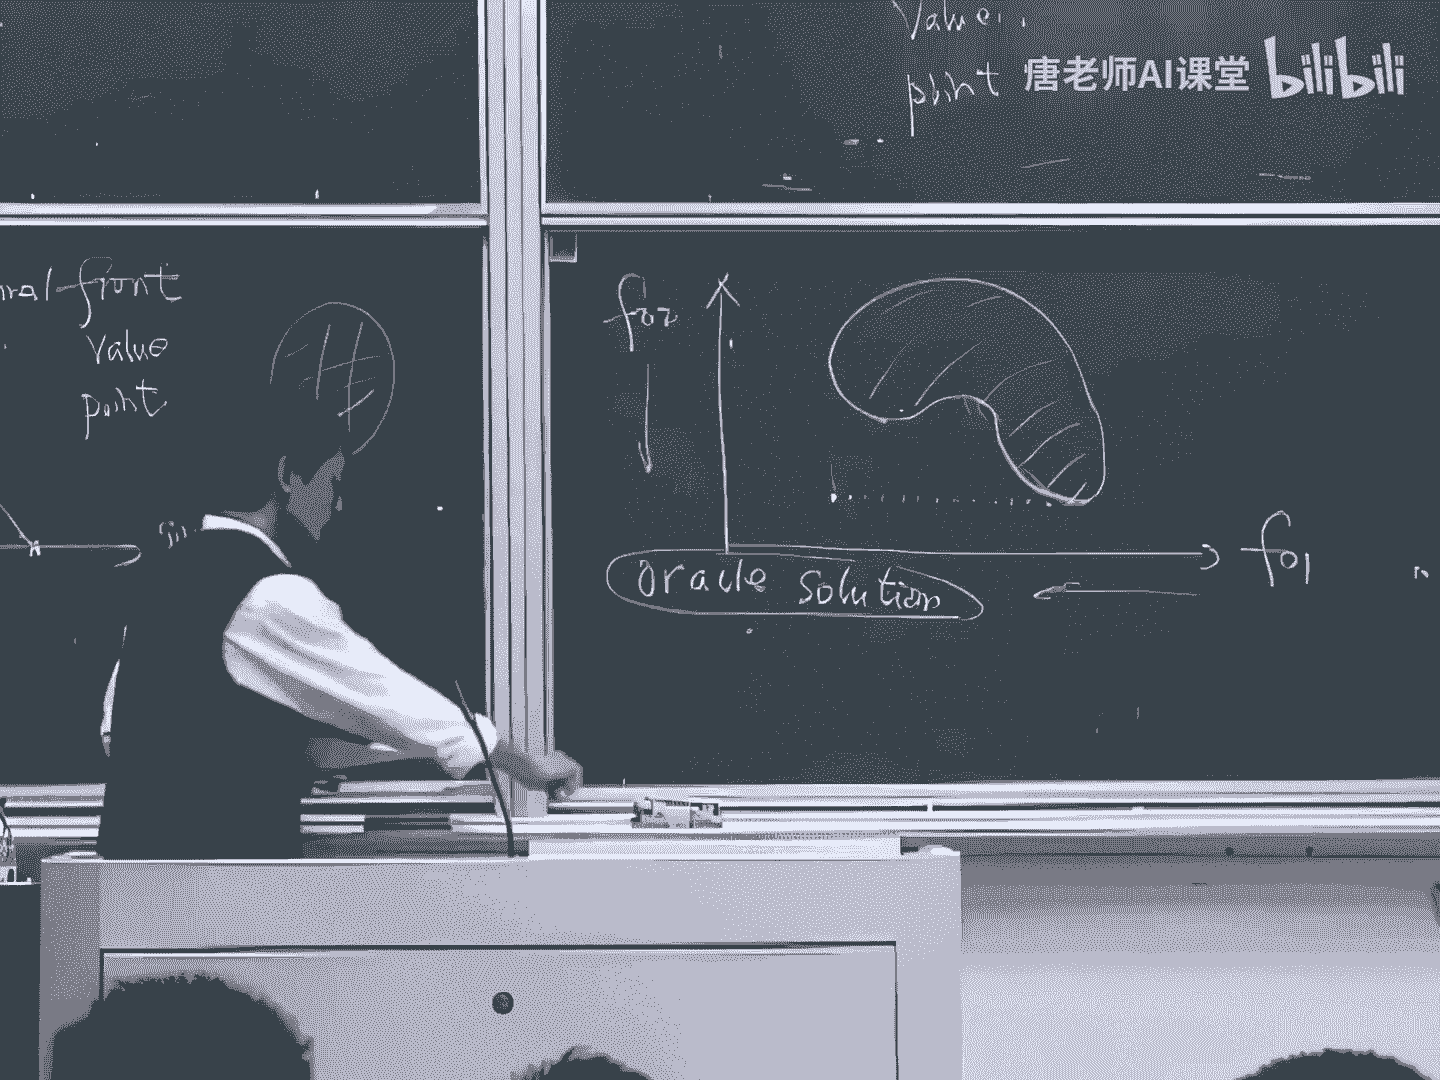 Value
point
唐老师AI课堂 bilibili
front
Value
point
f02
oracle solution
f01